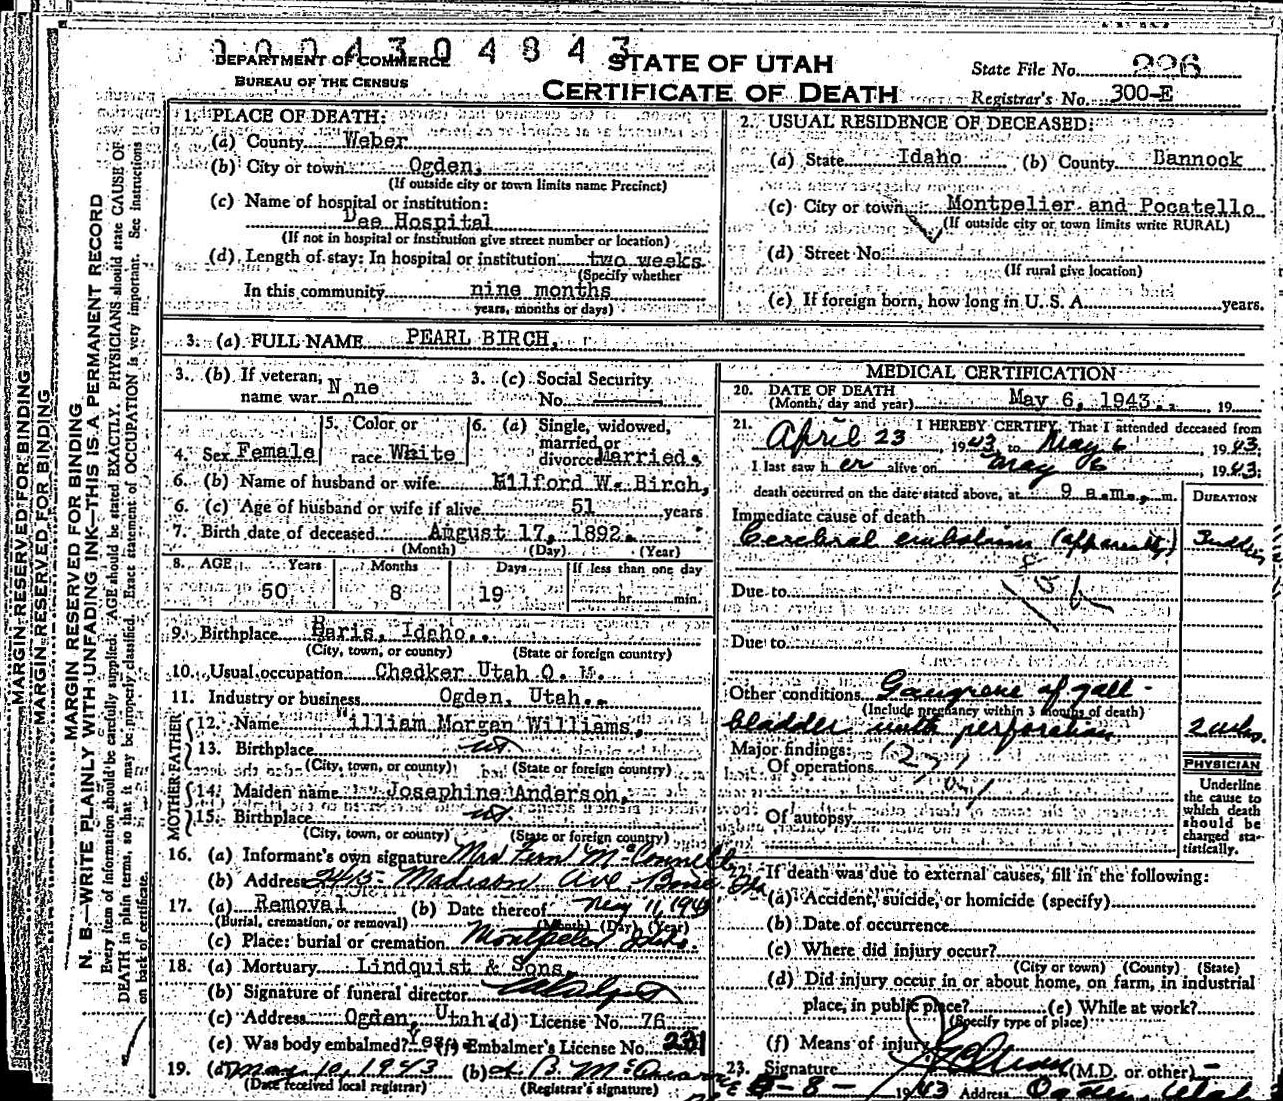 0004304843
DEPARTMENT OF COMMERCE
BUREAU OF THE CENSUS
STATE OF UTAH
CERTIFICATE OF DEATH
State File No. 226
Registrar's No. 300-E
MARGIN RESERVED FOR BINDING
MARGIN RESERVED FOR BINDING
MARGIN RESERVED FOR BINDING
N. B.—WRITE PLAINLY WITH UNFADING INK—THIS IS A PERMANENT RECORD
Every item of information should be carefully supplied. AGE should be stated EXACTLY. PHYSICIANS should state CAUSE OF
DEATH in plain terms, so that it may be properly classified. Exact statement of OCCUPATION is very important. See instructions
on back of certificate.
1. PLACE OF DEATH:
(a) County Weber
(b) City or town Ogden,
(If outside city or town limits name Precinct)
(c) Name of hospital or institution:
Dee Hospital
(If not in hospital or institution give street number or location)
(d) Length of stay: In hospital or institution two weeks
(Specify whether
In this community nine months
years, months or days)
2. USUAL RESIDENCE OF DECEASED:
(a) State Idaho (b) County Bannock
(c) City or town Montpelier and Pocatello
(If outside city or town limits write RURAL)
(d) Street No.
(If rural give location)
(e) If foreign born, how long in U. S. A. years.
3. (a) FULL NAME PEARL BIRCH,
3. (b) If veteran, name war None
3. (c) Social Security No.
4. Sex Female
5. Color or race White
6. (a) Single, widowed, married or divorced Married.
6. (b) Name of husband or wife Milford W. Birch,
6. (c) Age of husband or wife if alive 51 years
7. Birth date of deceased August 17, 1892.
(Month) (Day) (Year)
8. AGE Years Months Days If less than one day
50 8 19 hr. min.
9. Birthplace Paris, Idaho.
(City, town, or county) (State or foreign country)
10. Usual occupation Checker Utah O. M.
11. Industry or business Ogden, Utah.
FATHER
12. Name William Morgan Williams,
13. Birthplace ut
(City, town, or county) (State or foreign country)
MOTHER
14. Maiden name Josephine Anderson,
15. Birthplace ut.
(City, town, or county) (State or foreign country)
16. (a) Informant's own signature Mrs Fern McConnell
(b) Address Madison Ave Boise, Ida
17. (a) Removal (b) Date thereof May 11, 1943
(Burial, cremation, or removal) (Month) (Day) (Year)
(c) Place: burial or cremation Montpelier Idaho
18. (a) Mortuary Lindquist & Sons,
(b) Signature of funeral director
(c) Address Ogden, Utah (d) License No. 76
(e) Was body embalmed? Yes (f) Embalmer's License No. 231
19. (a) May 10, 1943 (b)
(Date received local registrar) (Registrar's signature)
MEDICAL CERTIFICATION
20. DATE OF DEATH
(Month, day and year) May 6, 1943. 19
21. I HEREBY CERTIFY, That I attended deceased from
April 23, 1943 to May 6, 1943.
I last saw h er alive on May 6 1943.
death occurred on the date stated above, at 9 a.m. m.
DURATION
Immediate cause of death
Cerebral embolism (apparently)
Due to
Due to
Other conditions Gangrene of gall-
(Include pregnancy within 3 months of death)
bladder with perforation 2 wks.
Major findings:
Of operations 127
Of autopsy
PHYSICIAN
Underline
the cause to
which death
should be
charged sta-
tistically.
22. If death was due to external causes, fill in the following:
(a) Accident, suicide, or homicide (specify)
(b) Date of occurrence
(c) Where did injury occur?
(City or town) (County) (State)
(d) Did injury occur in or about home, on farm, in industrial
place, in public place? (e) While at work?
(Specify type of place)
(f) Means of injury
23. Signature (M.D. or other)
5-8- 1943 Address Ogden, Utah